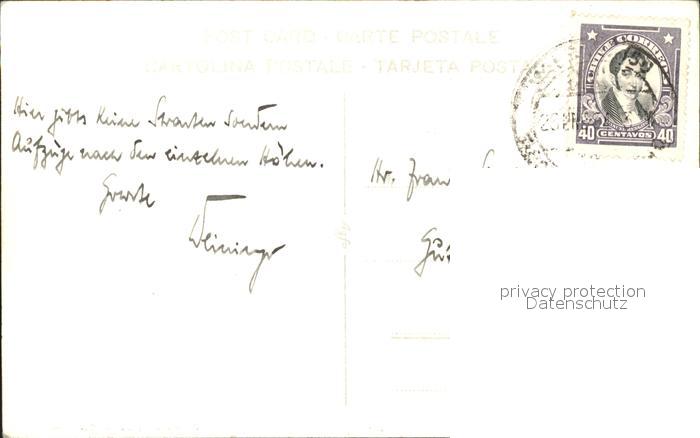 POST CARD · CARTE POSTALE
CARTOLINA POSTALE · TARJETA POSTA
CHILE CORREO
40 CENTAVOS 40
Hier gibts keine Strassen sondern
Aufzüge nach den einzelnen Höhen.
Grüsse
Hr. Fran
privacy protection
Datenschutz